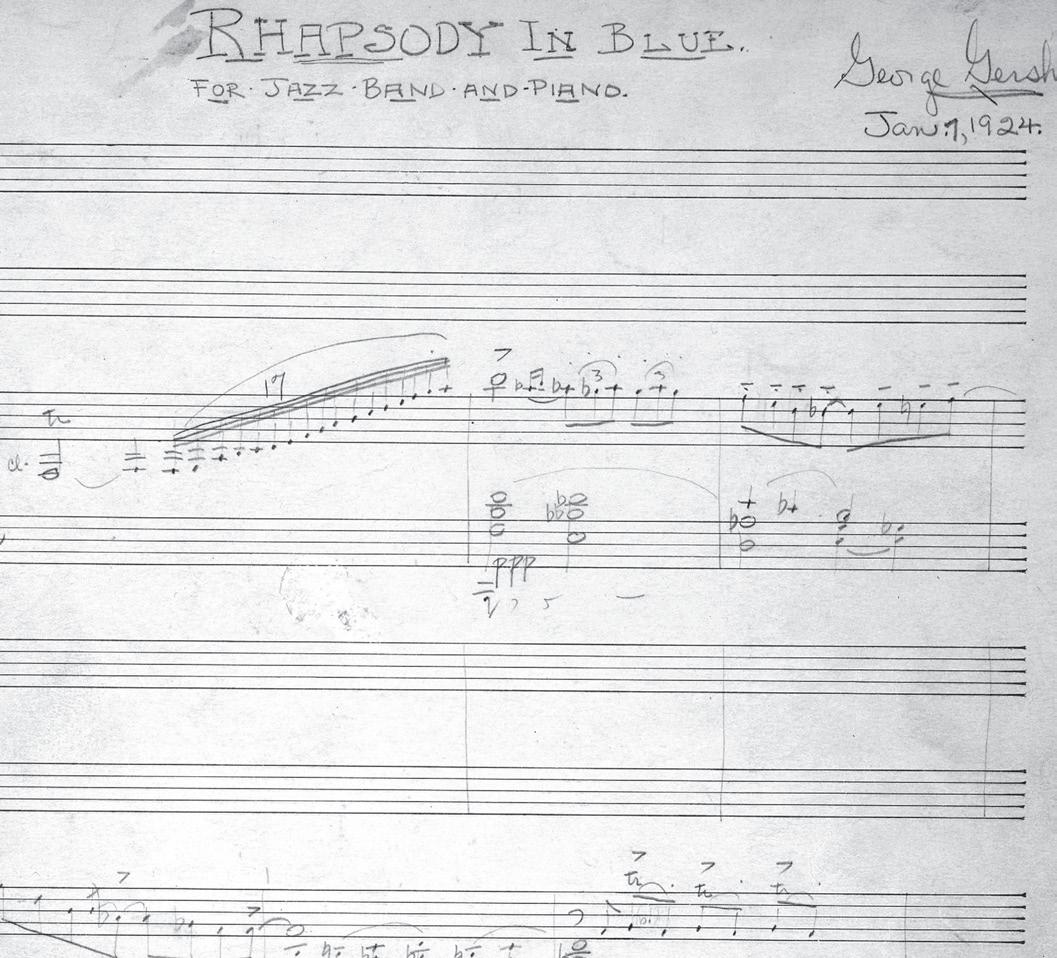 RHAPSODY IN BLUE.
FOR·JAZZ·BAND·AND·PIANO.
George Gersh
Jan. 7, 1924.
17
tr
cl.
3 3
ppp
tr tr tr